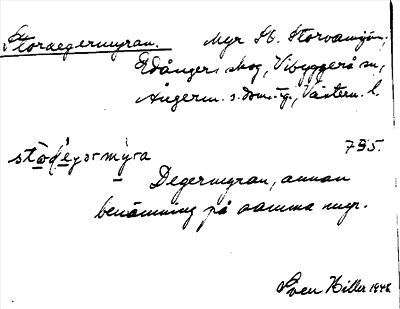 Storaegermyran. Myr St. Storvamyin,
Edånger skog, Vibyggerå sn,
Ångerm. s. doms., Västern. l.
795.
Degermyran, annan
benämning på samma myr.
Sven Hiller 1946